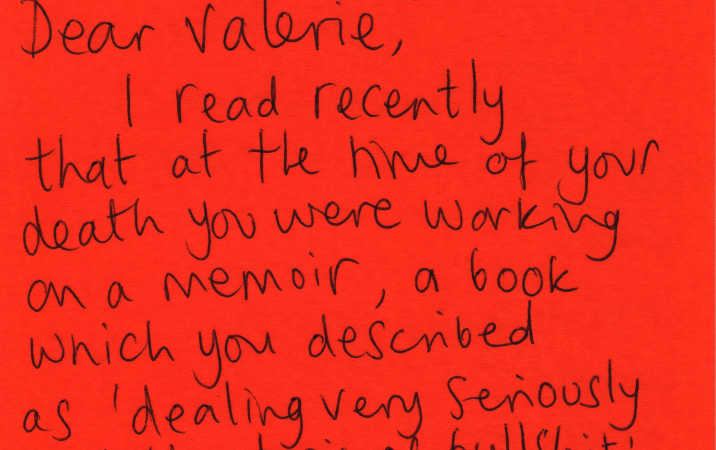 Dear Valerie,
I read recently
that at the time of your
death you were working
on a memoir, a book
which you described
as 'dealing very seriously
bullshit'